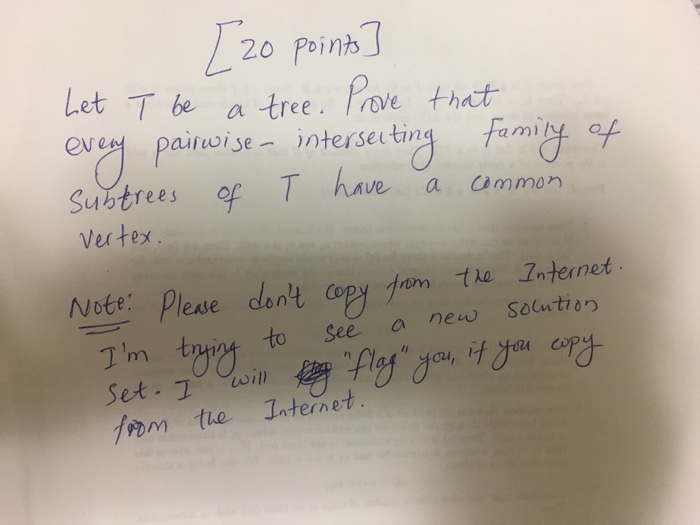 [20 points]
Let T be a tree. Prove that
every pairwise- intersecting Family of
Subtrees of T have a common
Vertex.
Note: Please don't copy from the Internet.
I'm trying to see a new solution
Set. I will "flag" you, if you copy
from the Internet.